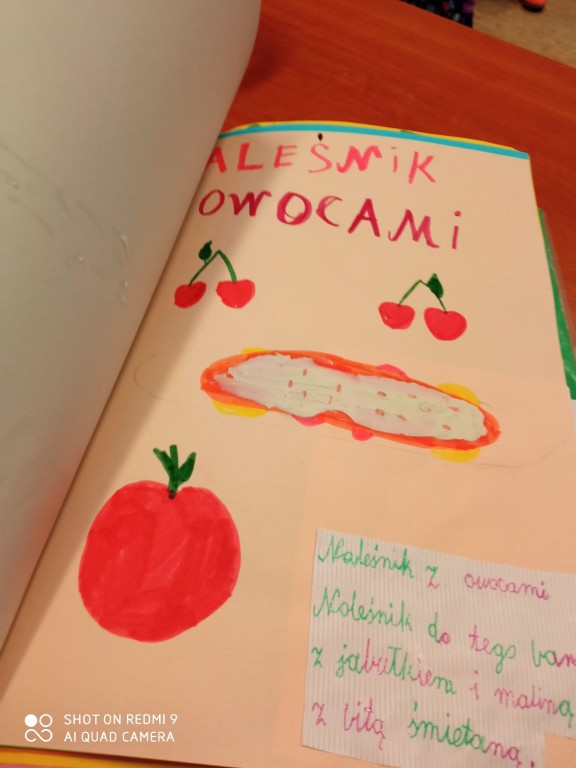 ALEŚNiK
OWOCAMi
Naleśnik z owocami
Noleśnik do tego
z jabułkiem i maliną
z bitą śmietaną.
SHOT ON REDMI 9
AI QUAD CAMERA